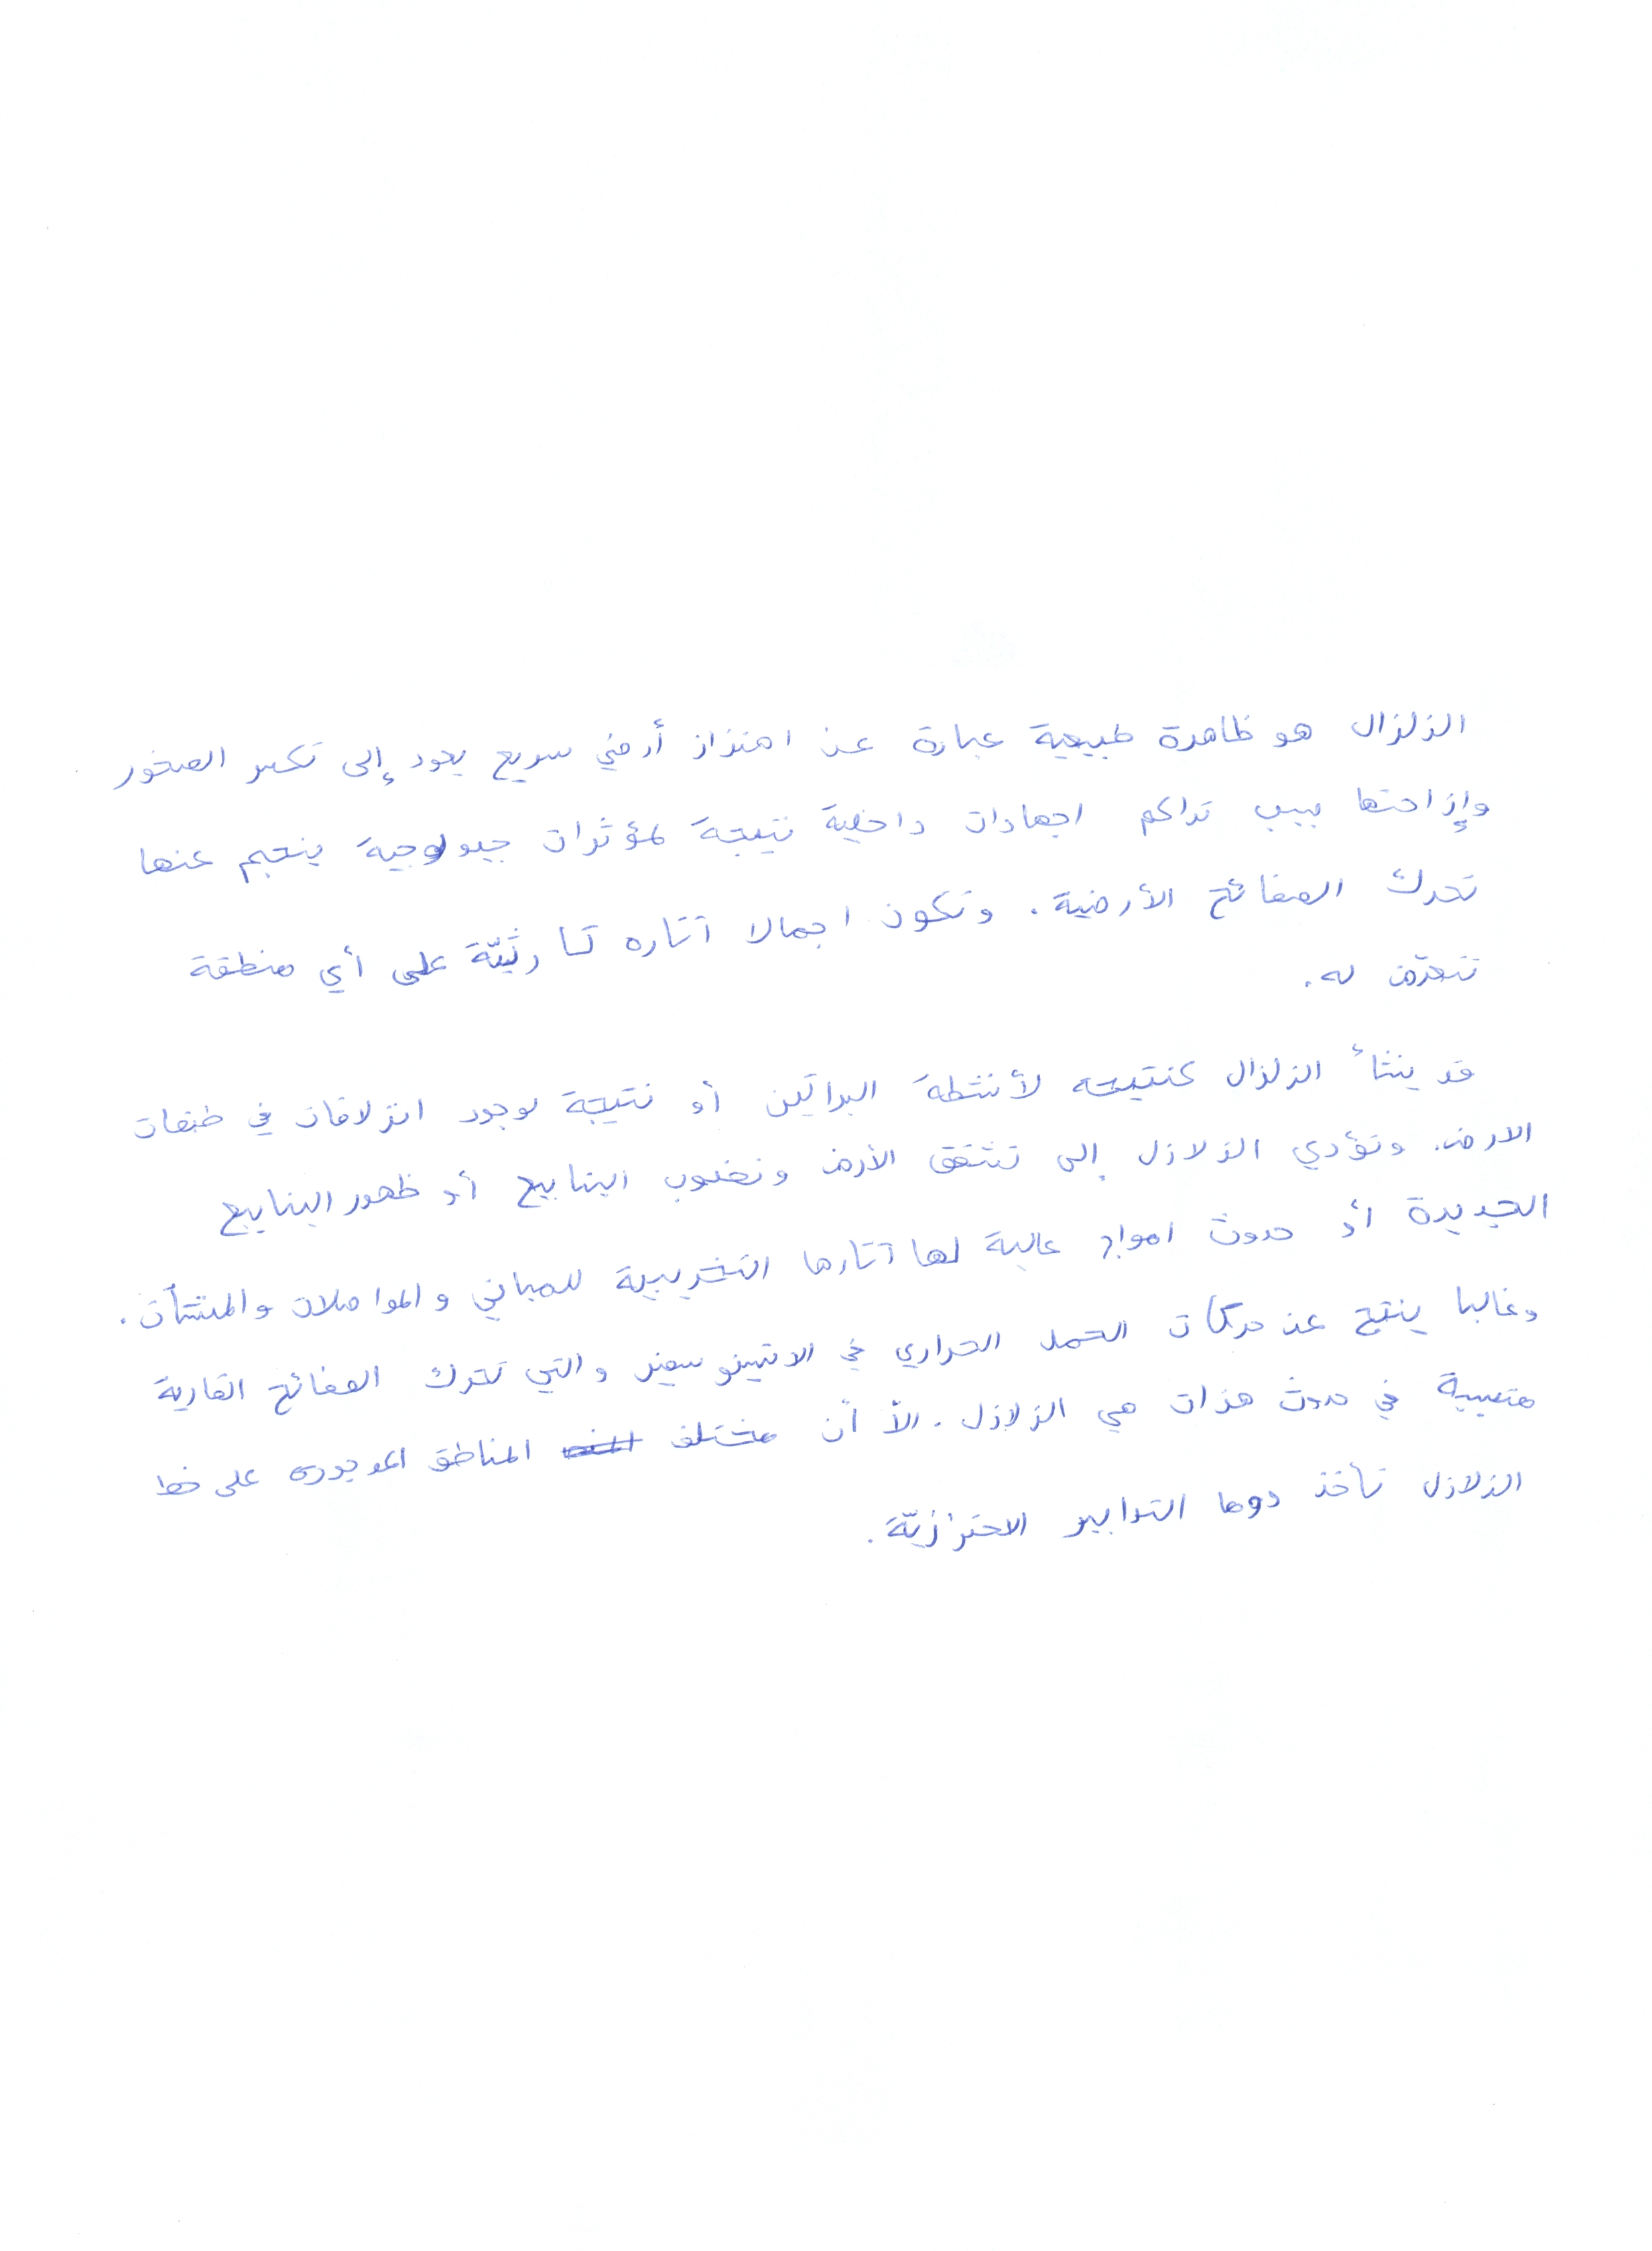 الزلزال هو ظاهرة طبيعية عبارة عن اهتزاز أرضي سريع يعود إلى تكسر الصخور
وإزاحتها بسبب تراكم اجهادات داخلية نتيجة لمؤثرات جيولوجية ينجم عنها
تحرك الصفائح الأرضية. وتكون اجمالا آثاره كارثيّة على أي منطقة
تتعرّض له.
قد ينشأ الزلزال كنتيجه لأنشطة البراكين أو نتيجة لوجود انزلاقات في طبقات
الارض. وتؤدي الزلازل إلى تشقق الأرض ونضوب الينابيع أو ظهور الينابيع
الجديدة أو حدوث امواج عالية لها آثارها التخريبية للمباني والمواصلات والمنشأت.
وغالبا ينتج عن حركات الحمل الحراري في الاتينوسفير والتي تحرك الصفائح القارية
متسببة في حدوث هزات هي الزلازل. الاّ أن مختلف المناطق الموجوده على خط
الزلازل تأخذ دوما التدابير الاحترازيّة.